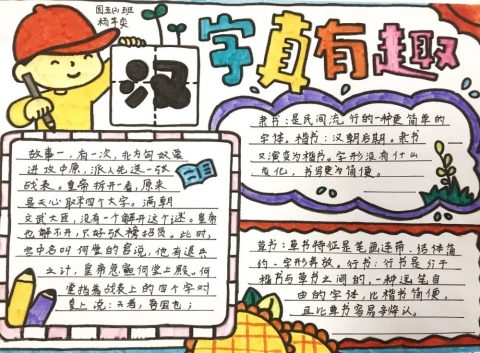 汉
字真有趣
故事一，有一次，北方匈奴要
进攻中原，派人先送一张
战表。皇帝拆开一看，原来
是天心取米四个大字。满朝
文武大臣，没有一个解开这个迷。皇帝
也解不开，只好张榜招贤。此时，
宫中名叫何莹的官说，他有退兵
之计，皇帝急宣何莹上殿。何
莹指着战表上的四个字对
皇上说：天者，吾国也；
隶书：是民间流行的一种更简单的
字体。楷书：汉朝后期。隶书
又演变为楷书。字形没有什么
变化，书写更为简便。
草书：草书特征是笔画连带，结体简
约、字形奔放。行书：行书是介于
楷书与草书之间的，一种运笔自
由的字体，比楷书简便，
且比草书容易辨认。